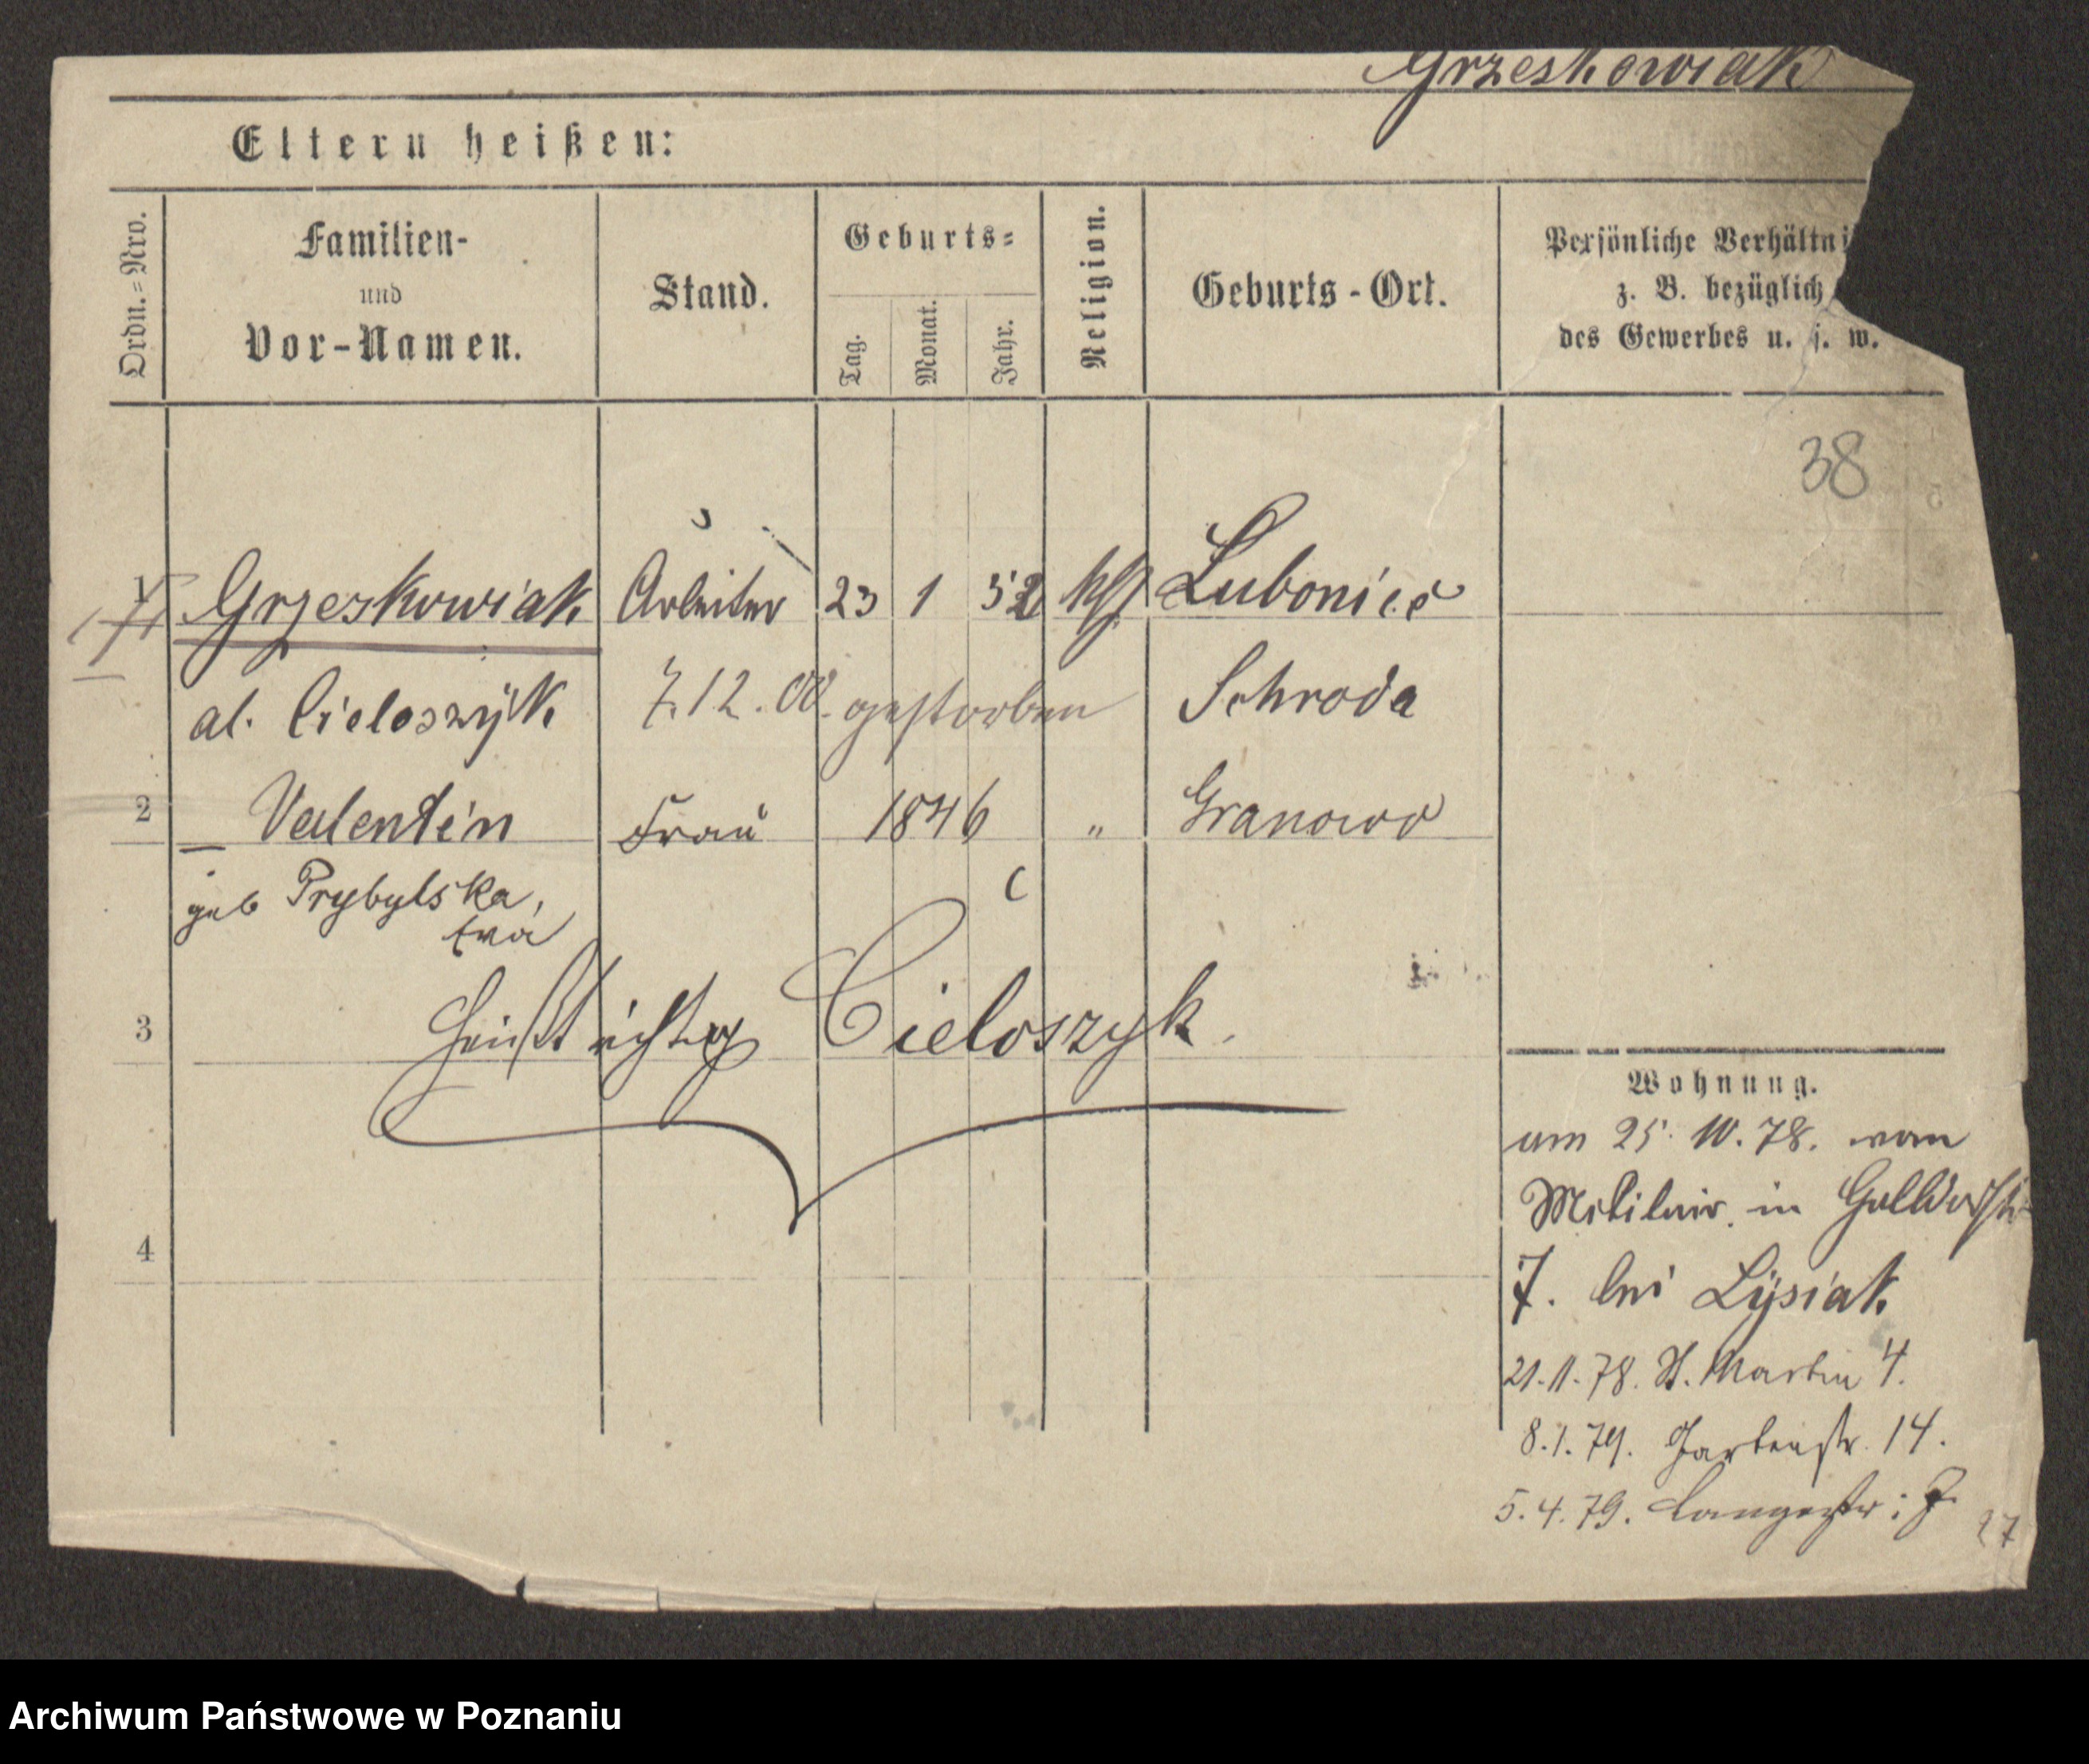 Grzeskowiak
Eltern heißen:
Ordn.=Nro.
Familien-
und
Vor-Namen.
Stand.
Geburts=
Tag.
Monat.
Jahr.
Religion.
Geburts-Ort.
Persönliche Verhältni
z. B. bezüglich
des Gewerbes u. s. w.
38
1
Grzeskowiak Arbeiter 23 1 52 kth Lubonieč
al. Cieloszyk 7.12.00. gestorben Schroda
2 Valentin Frau 1846 " Granowo
geb Prybylska,
Eva
3 heißt richtig Cieloszyk.
4
Wohnung.
am 25. 10. 78. vom
Militair. in
7. bei Lysiak
21.11.78. St. Martin 4.
8.1.79. Gartenstr. 14.
5.4.79. Langestr: 7.
27
Archiwum Państwowe w Poznaniu